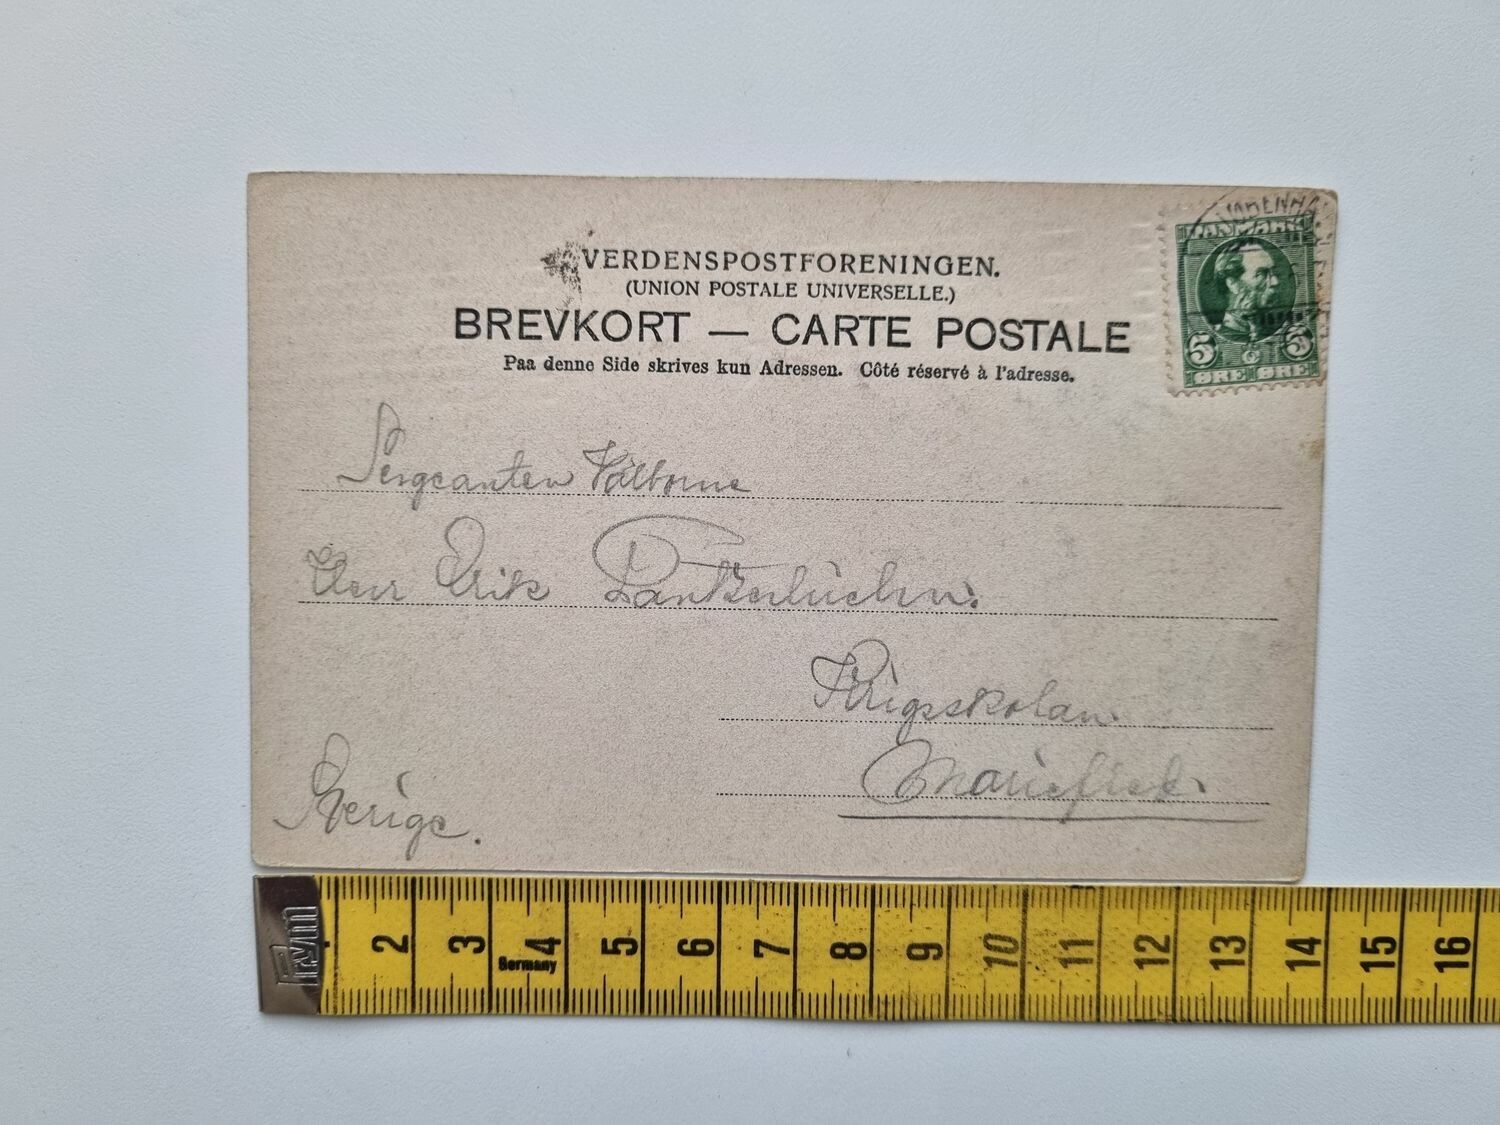 DANMARK
5 5
ØRE ØRE
VERDENSPOSTFORENINGEN.
(UNION POSTALE UNIVERSELLE.)
BREVKORT — CARTE POSTALE
Paa denne Side skrives kun Adressen. Côté réservé à l'adresse.
Sergeanten Välborne
Herr Erik
Krigsskolan
Mariefred.
Sverige.
Prym
Germany
2 3 4 5 6 7 8 9 10 11 12 13 14 15 16